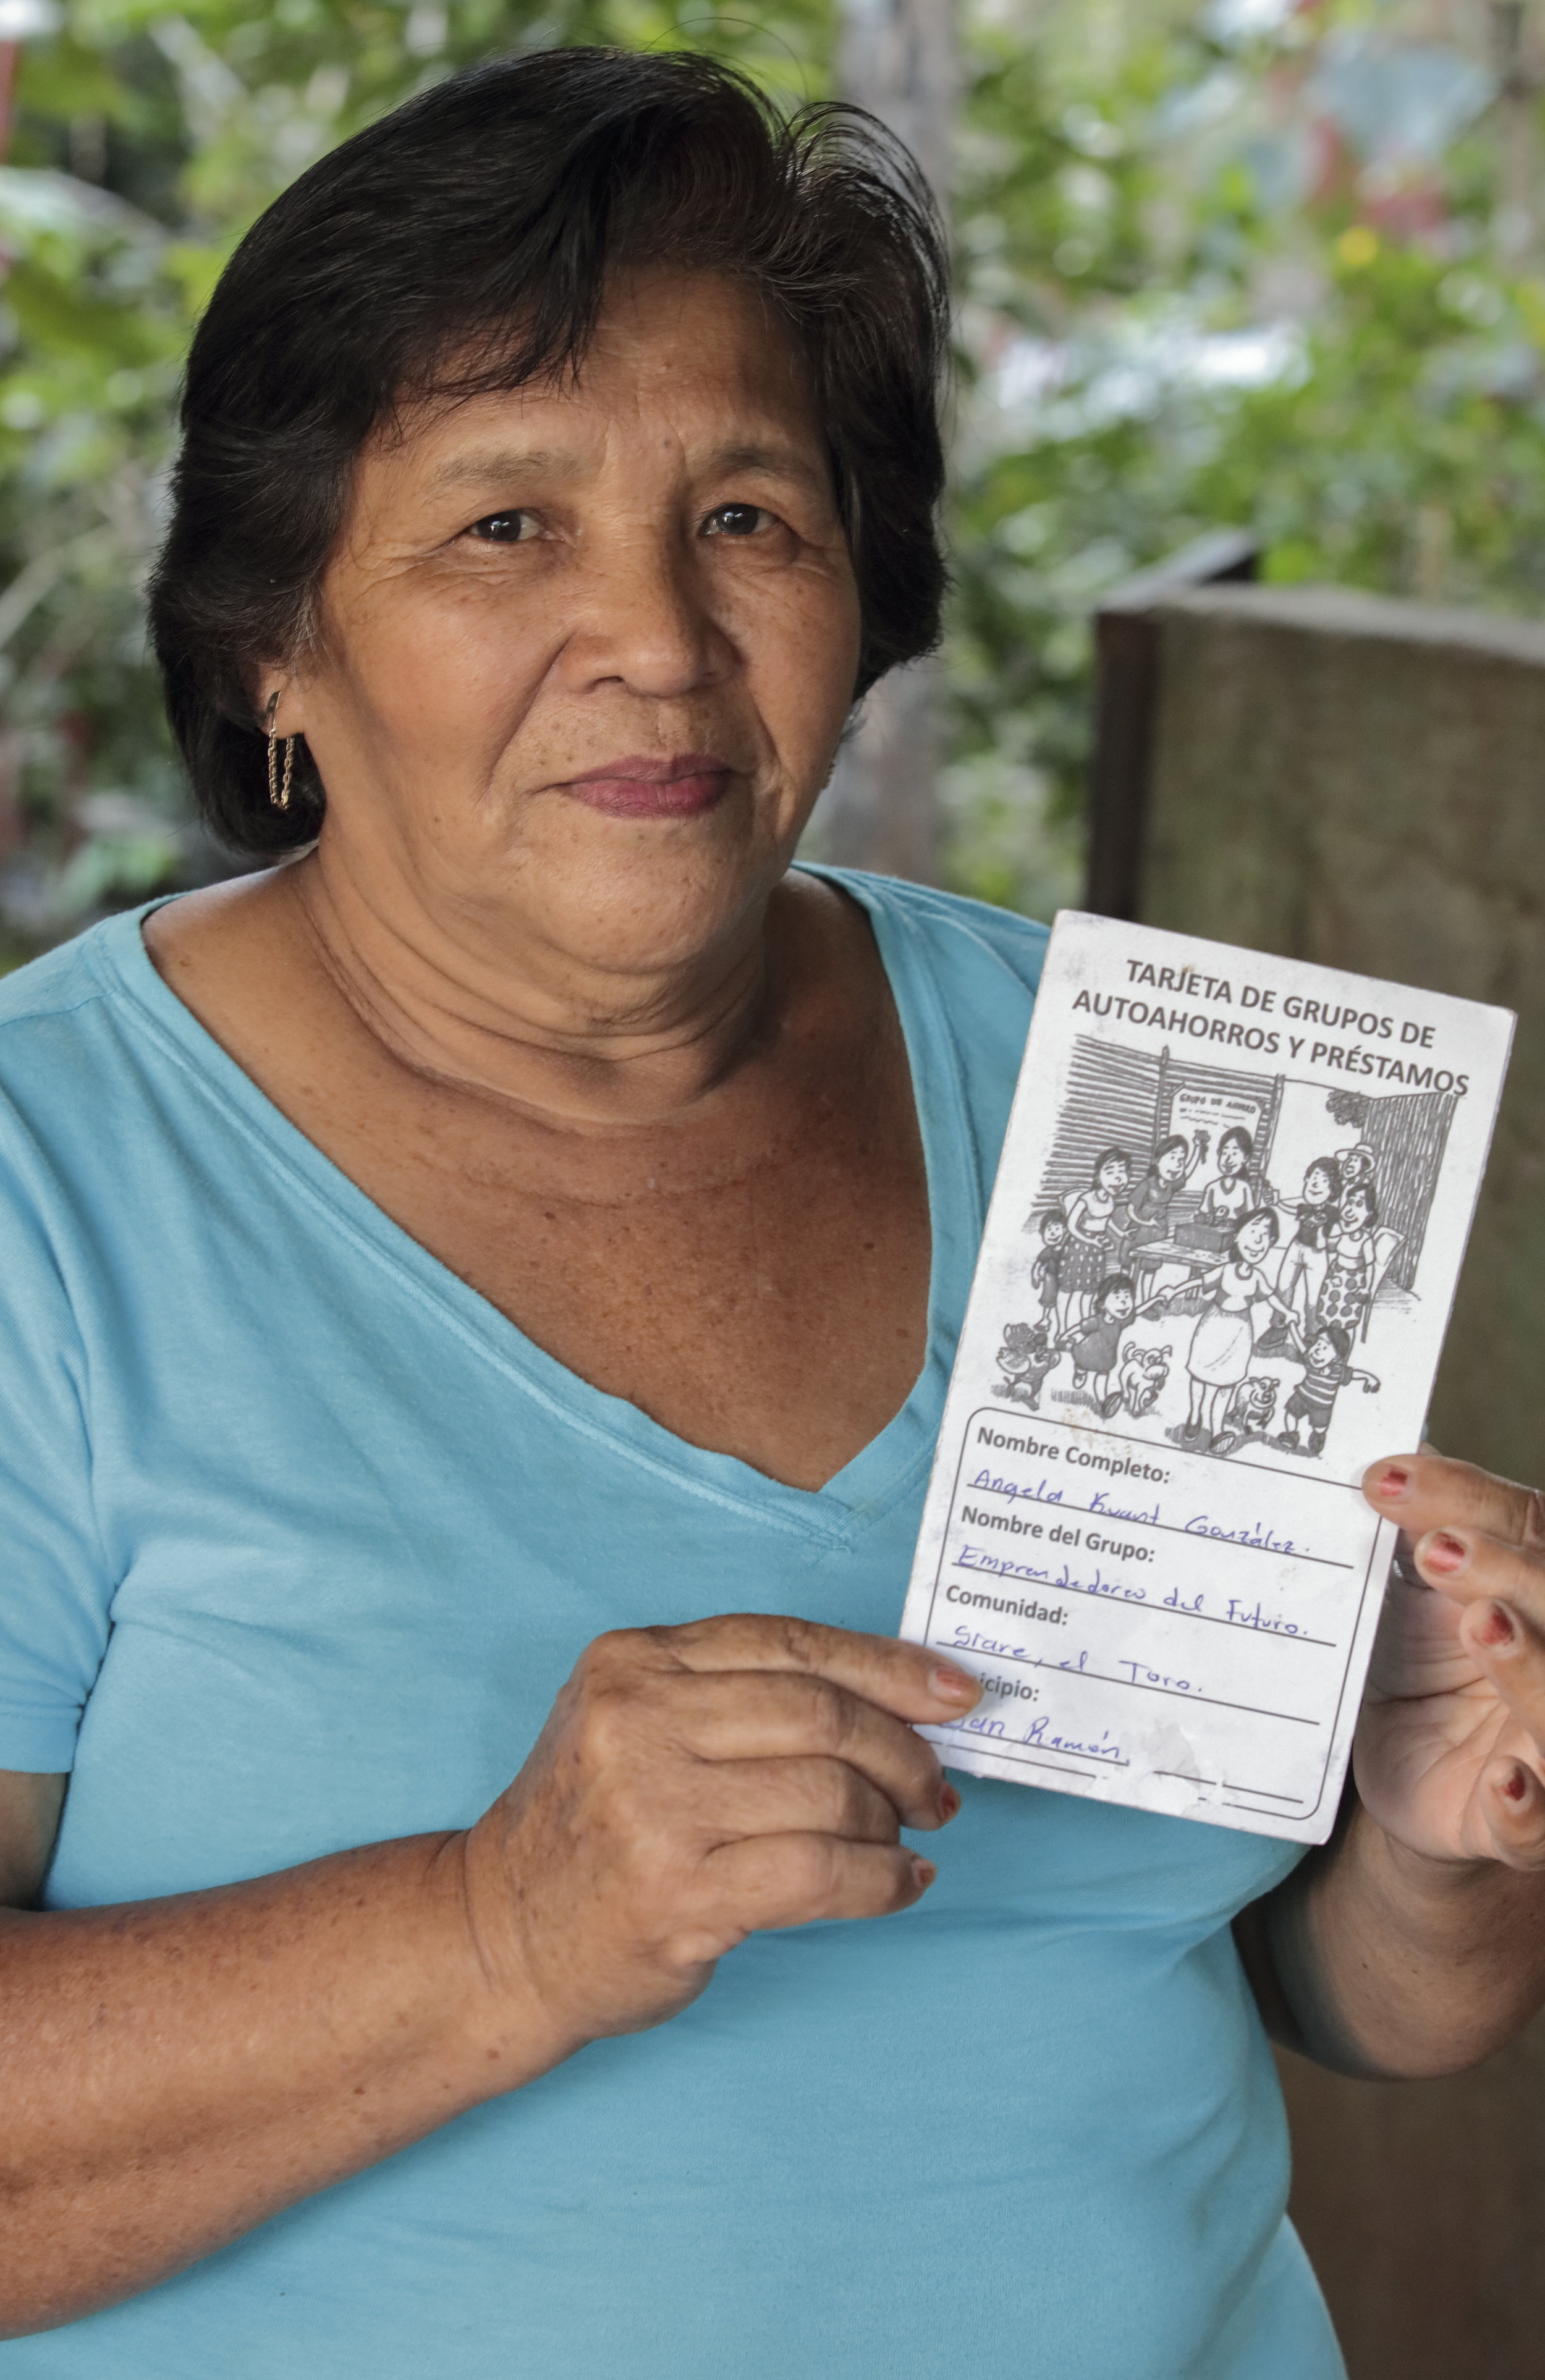 TARJETA DE GRUPOS DE
AUTOAHORROS Y PRÉSTAMOS
GRUPO DE AHORRO
Nombre Completo:
Angela Kuant González.
Nombre del Grupo:
Emprendedores del Futuro.
Comunidad:
Siare, el Toro.
icipio:
San Ramón,